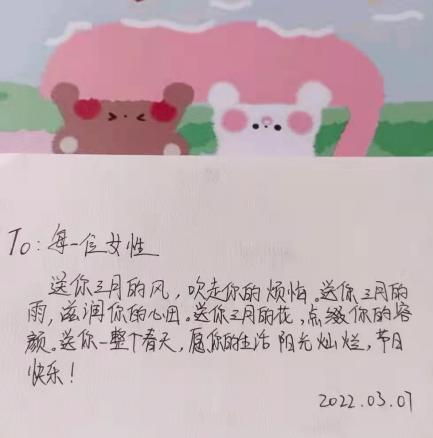 To:每一位女性
送你三月的风,吹走你的烦恼。送你三月的
雨,滋润你的心田。送你三月的花,点缀你的容
颜。送你一整个春天,愿你的生活阳光灿烂,节日
快乐!
2022.03.07